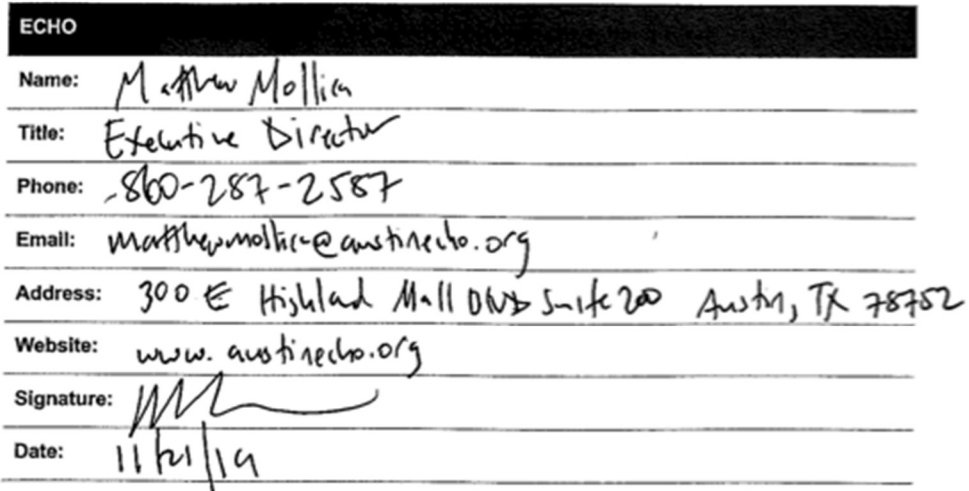 ECHO
Name: Matthew Mollica
Title: Executive Director
Phone: 860-287-2587
Email: matthewmollica@austinecho.org
Address: 300 E Highland Mall BLVD Suite 200 Austin, TX 78752
Website: www.austinecho.org
Signature:
Date: 11/21/19